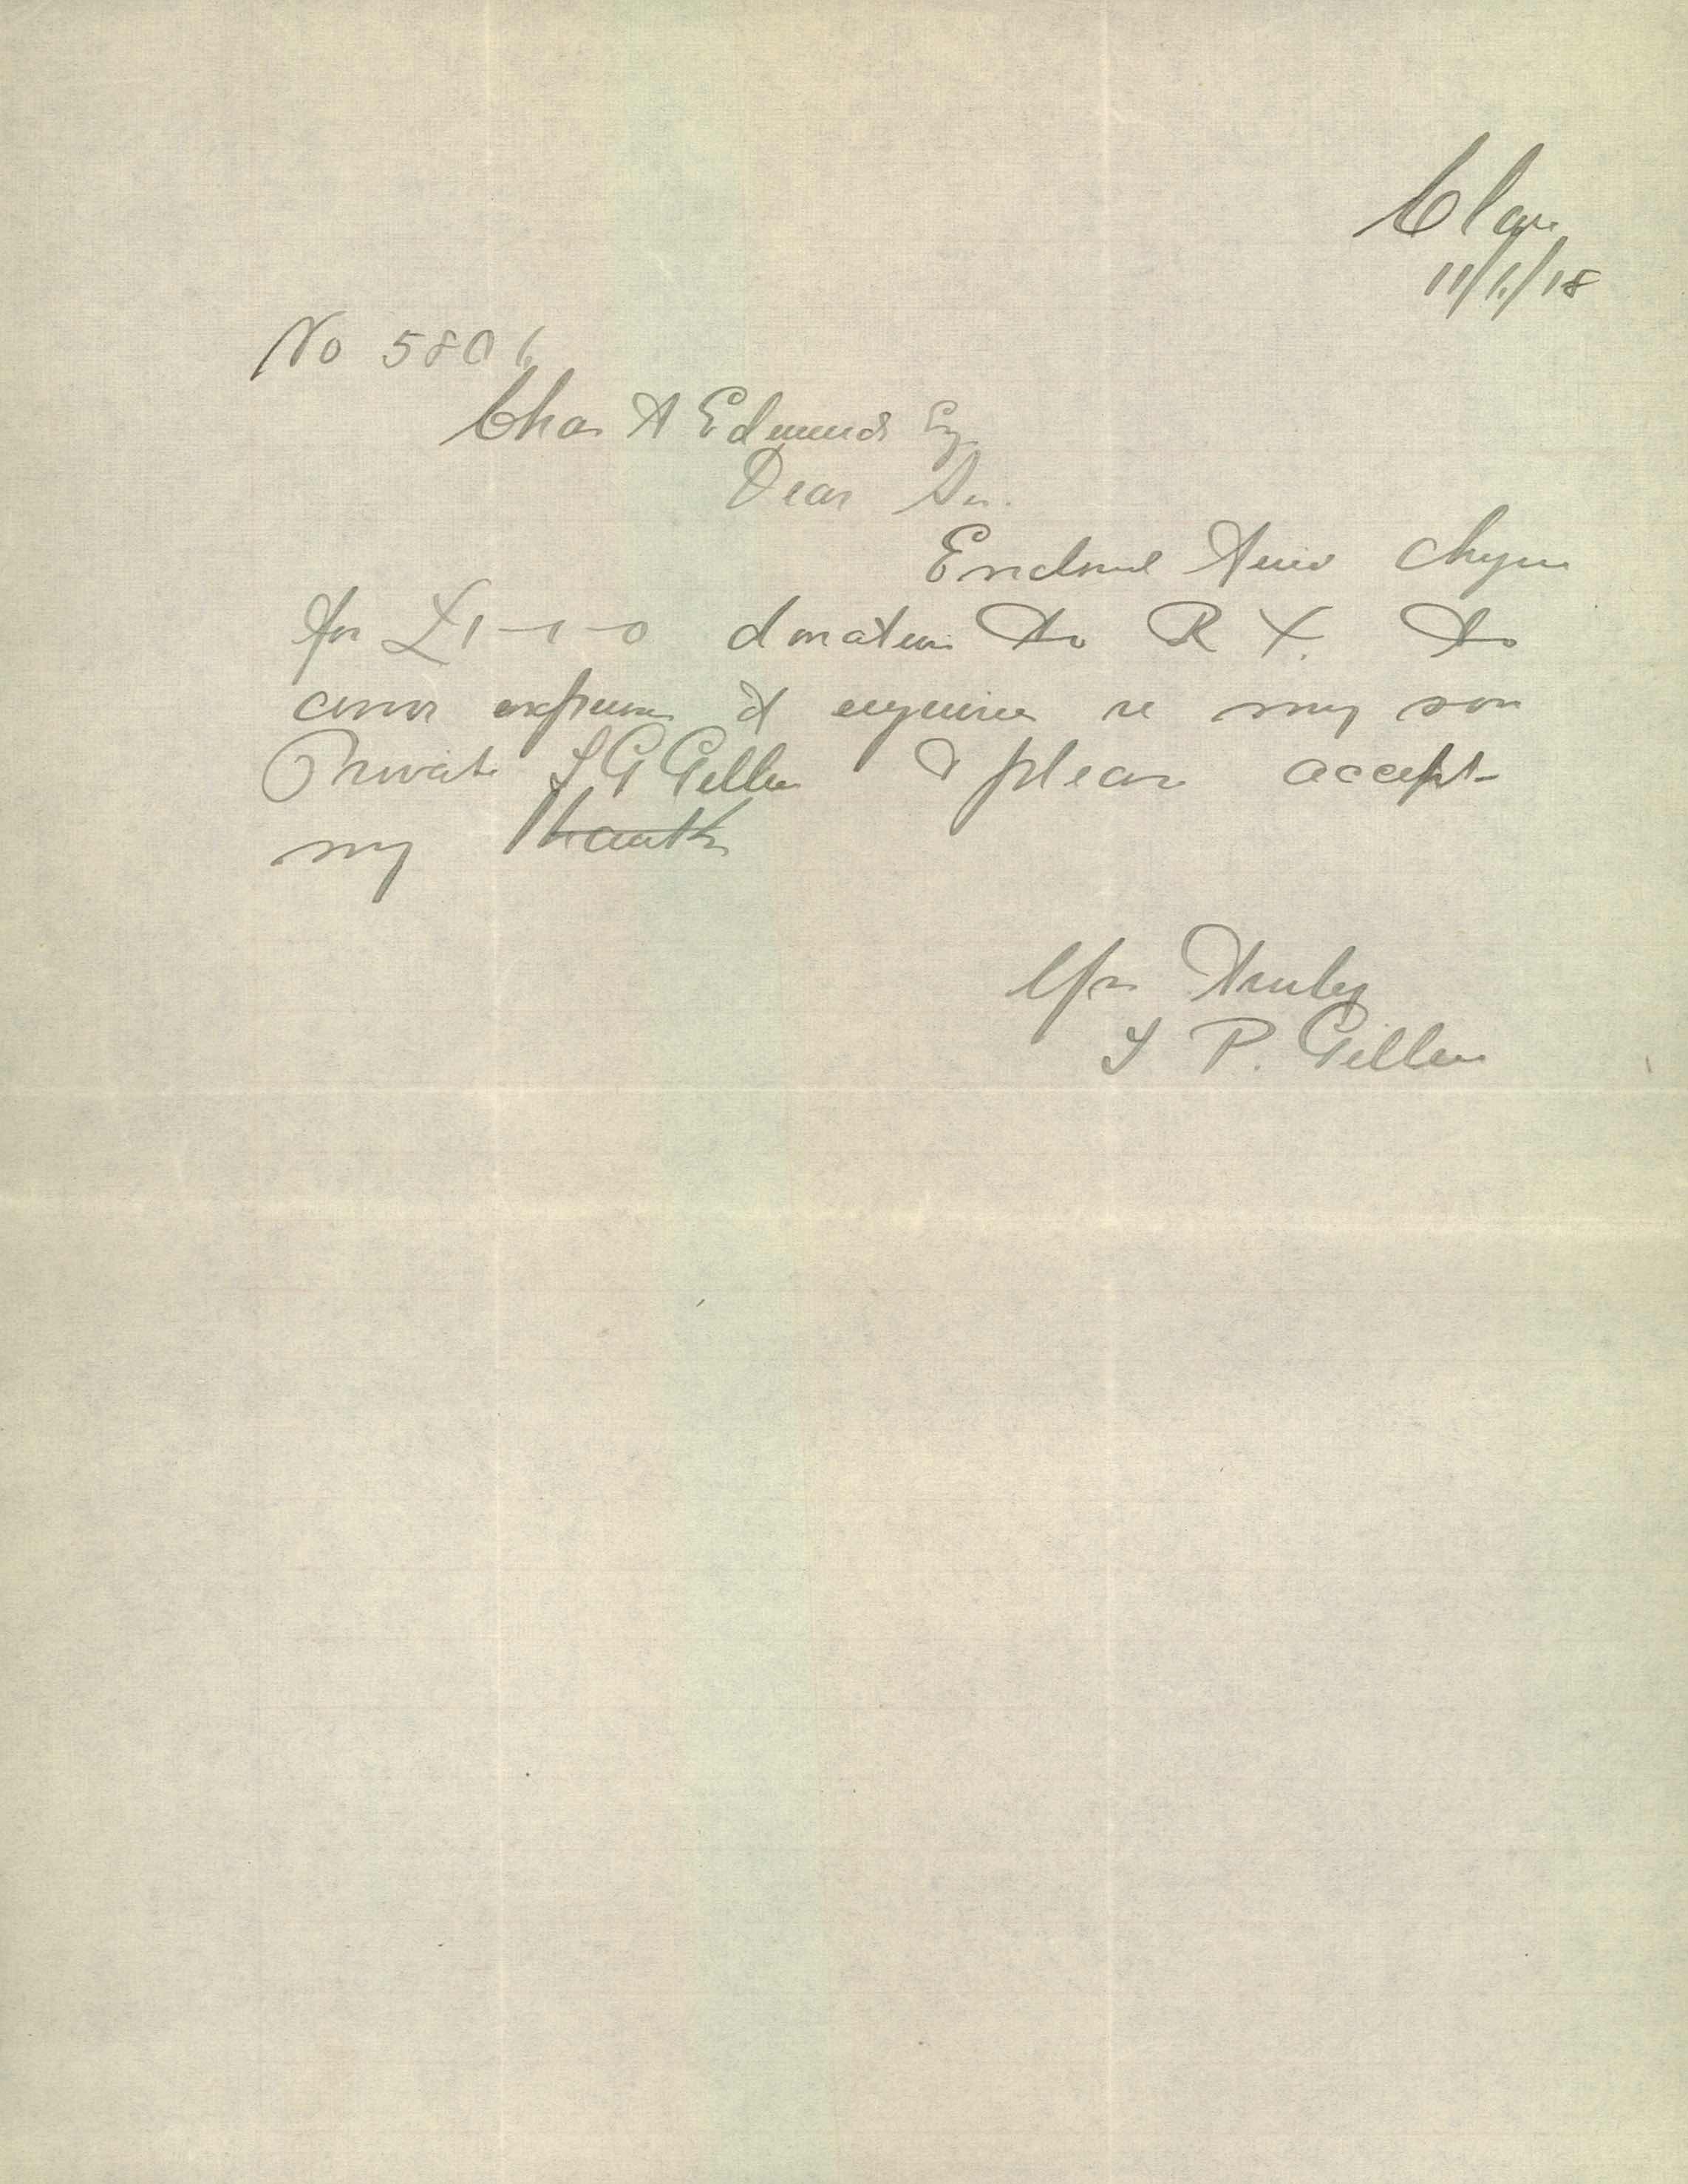 Clare
11/1/18
No 5801
Chas A Edmunds Esq
Dear Sir.
Enclosed cheque
for £1-1-0 donation to R X. to
cover expenses of enquiries re my son
Private G Gillen & please accept
my thanks
Yrs Truly
P. Gillen